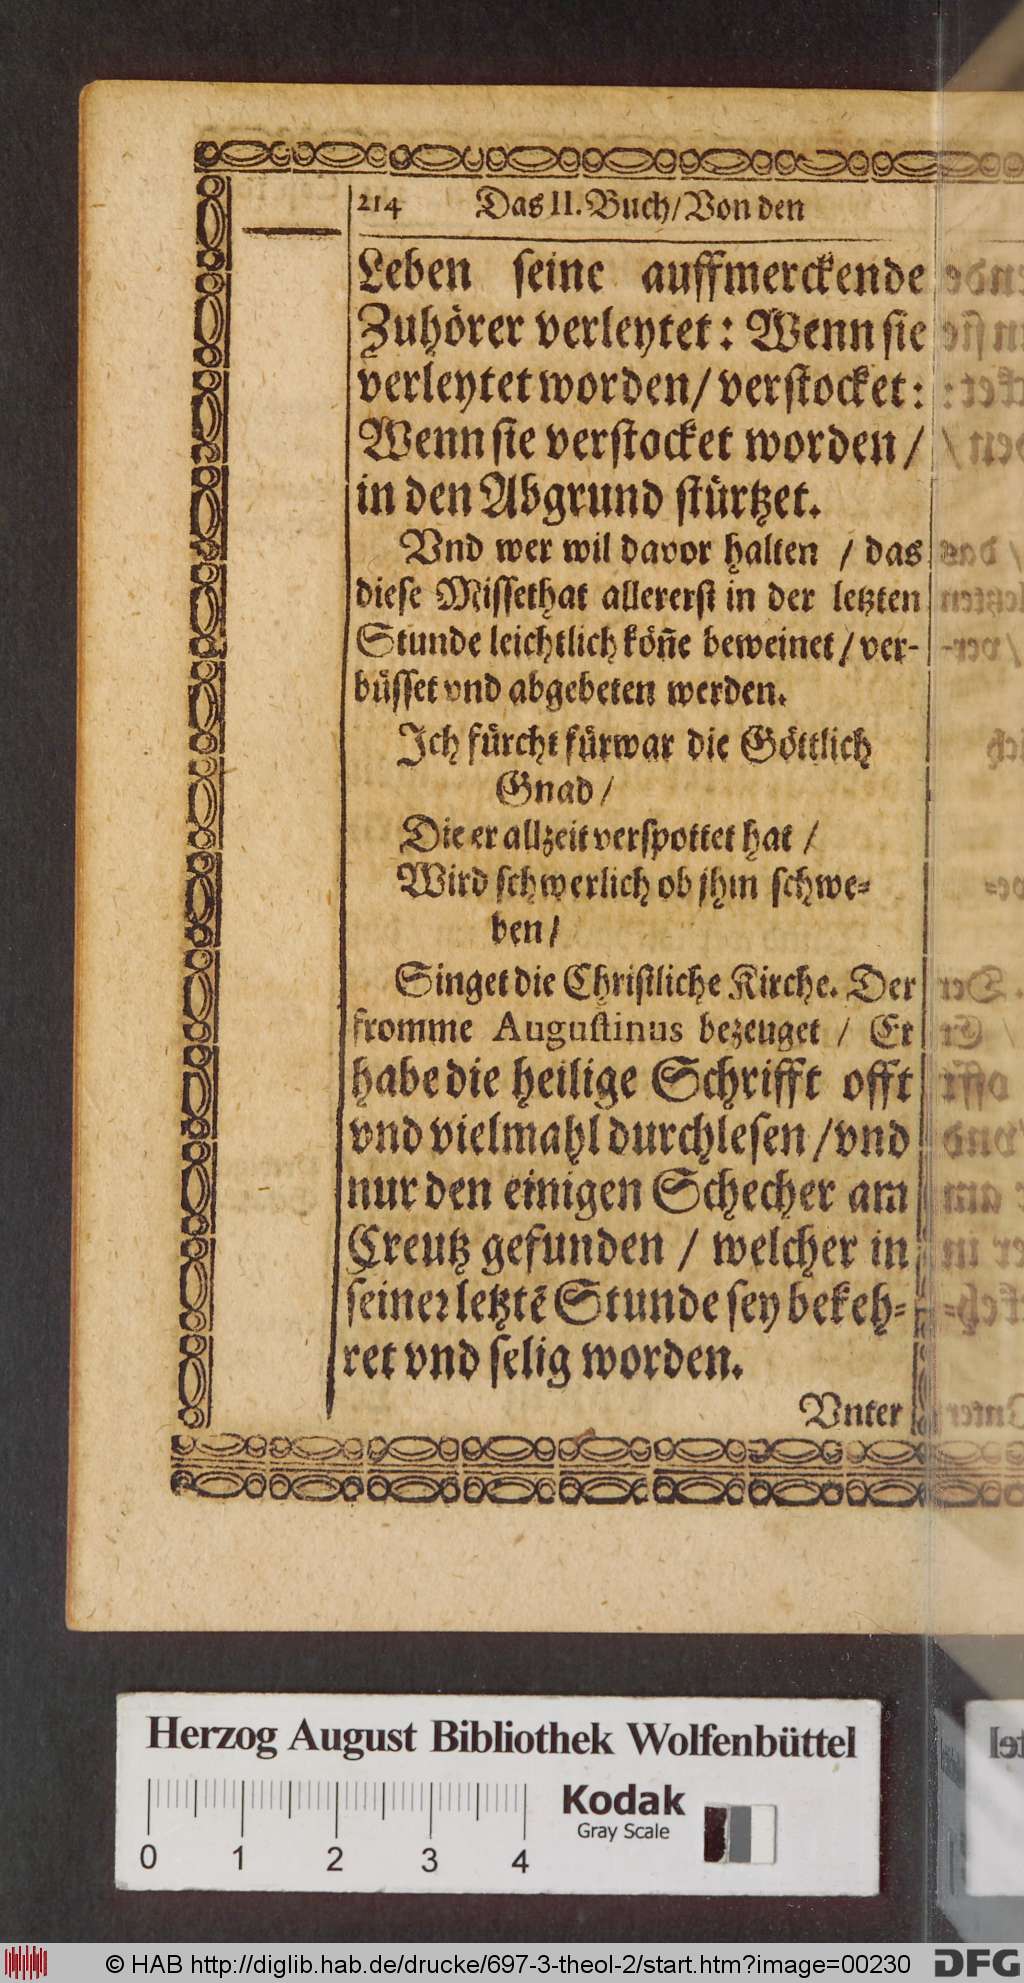 214 Das II. Buch/Von den
Leben seine auffmerckende
Zuhörer verleytet: Wenn sie
verleytet worden/ verstocket:
Wenn sie verstocket worden/
in den Abgrund stürtzet.
Vnd wer wil davor halten / das
diese Missethat allererst in der letzten
Stunde leichtlich köñe beweinet/ ver-
büsset vnd abgebeten werden.
Ich fürcht fürwar die Göttlich
Gnad/
Die er allzeit verspottet hat /
Wird schwerlich ob jhm schwe-
ben/
Singet die Christliche Kirche. Der
fromme Augustinus bezeuget / Er
habe die heilige Schrifft offt
vnd vielmahl durchlesen/vnd
nur den einigen Schecher am
Creutz gefunden / welcher in
seiner letztẽ Stunde sey bekeh-
ret vnd selig worden.
Vnter
Herzog August Bibliothek Wolfenbüttel
0 1 2 3 4
Kodak
Gray Scale
© HAB http://diglib.hab.de/drucke/697-3-theol-2/start.htm?image=00230
DFG